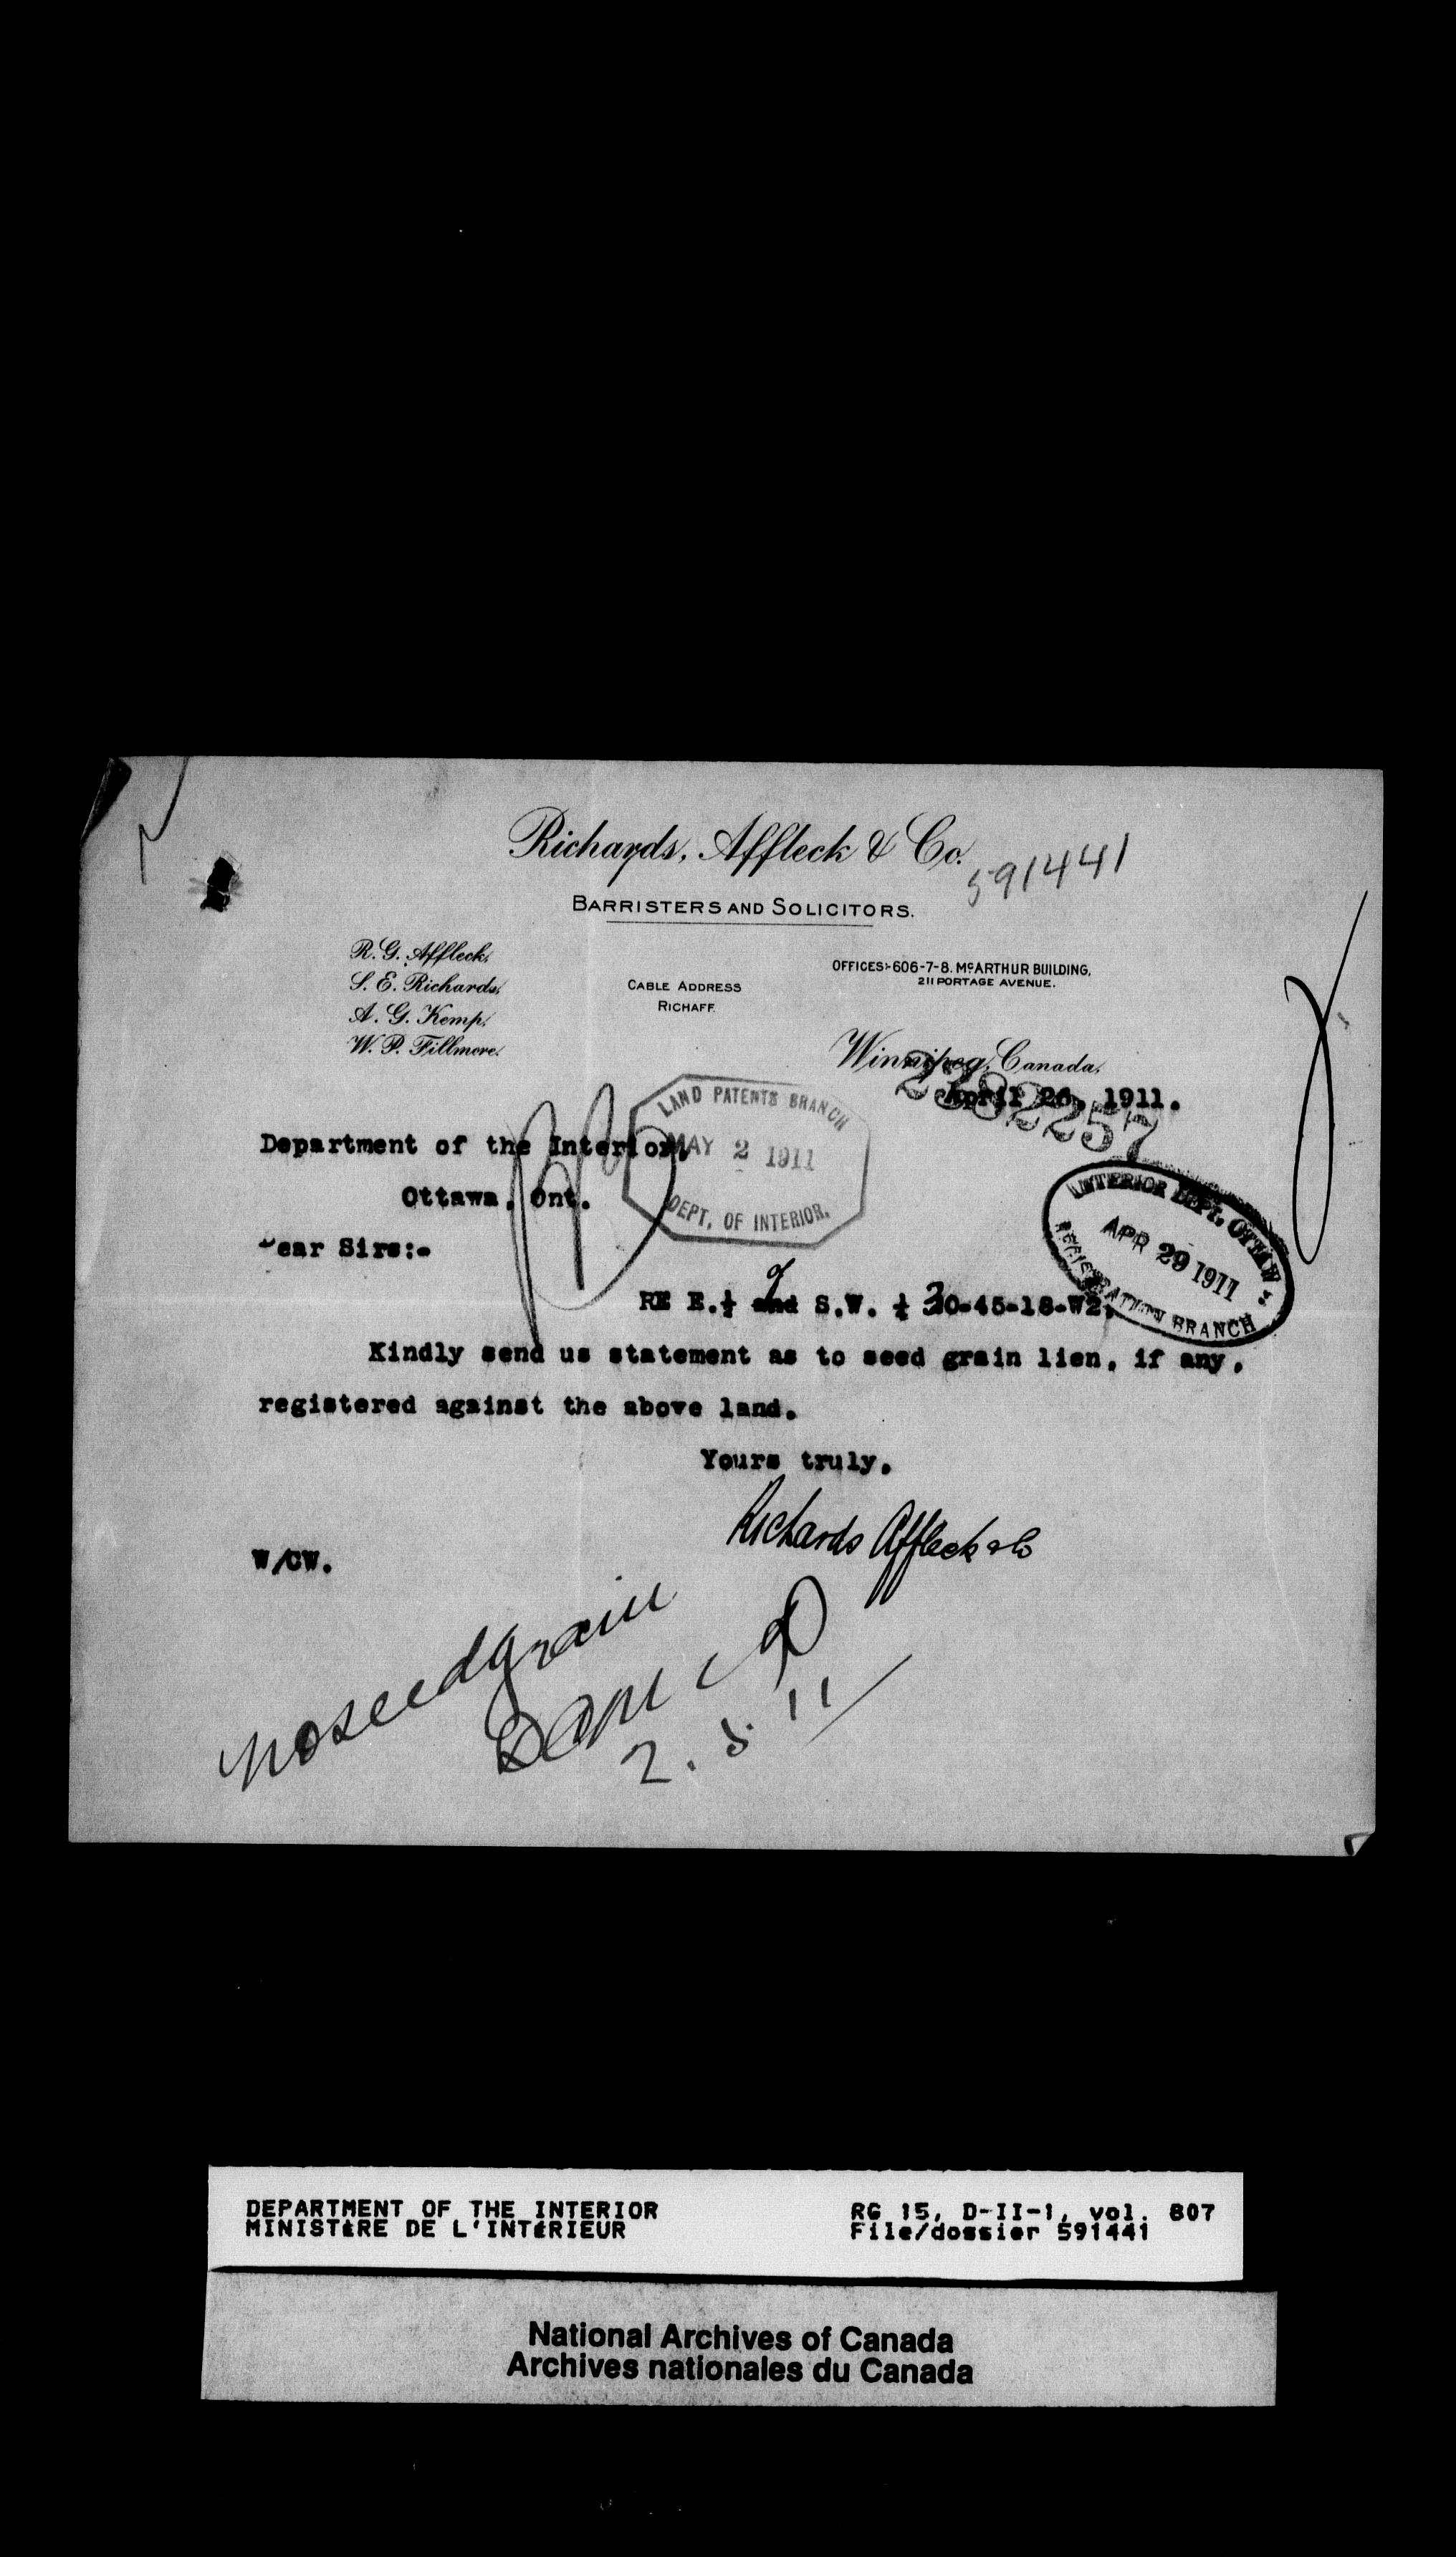 Richards, Affleck & Co.
591441
BARRISTERS AND SOLICITORS.
R. G. Affleck,
S. E. Richards,
A. G. Kemp,
W. P. Fillmore.
CABLE ADDRESS
RICHAFF.
OFFICES:-606-7-8. McARTHUR BUILDING,
211 PORTAGE AVENUE.
Winnipeg, Canada,
2382257
April 26, 1911.
LAND PATENTS BRANCH
MAY 2 1911
DEPT. OF INTERIOR.
Department of the Interior,
Ottawa, Ont.
INTERIOR DEPT. OTTAWA
APR 29 1911
REGISTRATION BRANCH
Dear Sirs:-
of
RE E.½ and S.W. ¼ 30-45-18-W2,
Kindly send us statement as to seed grain lien, if any,
registered against the above land.
Yours truly,
Richards Affleck & Co
W/CW.
no seed grain
2.5.11
DEPARTMENT OF THE INTERIOR
MINISTÈRE DE L'INTÉRIEUR
RG 15, D-II-1, vol. 807
File/dossier 591441
National Archives of Canada
Archives nationales du Canada